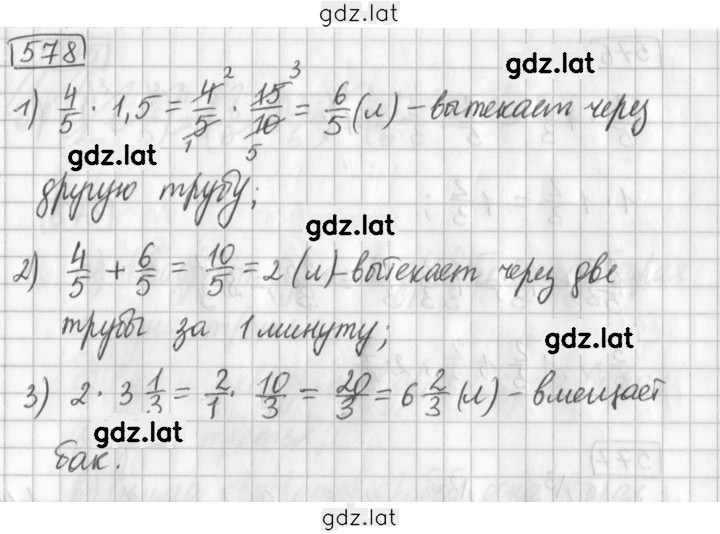 gdz.lat
578
gdz.lat
1) 4/5 · 1,5 = 4/5 · 15/10 = 6/5 (л) – вытекает через
2 3
1 5
gdz.lat
другую трубу;
gdz.lat
2) 4/5 + 6/5 = 10/5 = 2 (л) – вытекает через две
трубы за 1 минуту;
gdz.lat
3) 2 · 3 1/3 = 2/1 · 10/3 = 20/3 = 6 2/3 (л) – вмещает
gdz.lat
бак.
gdz.lat